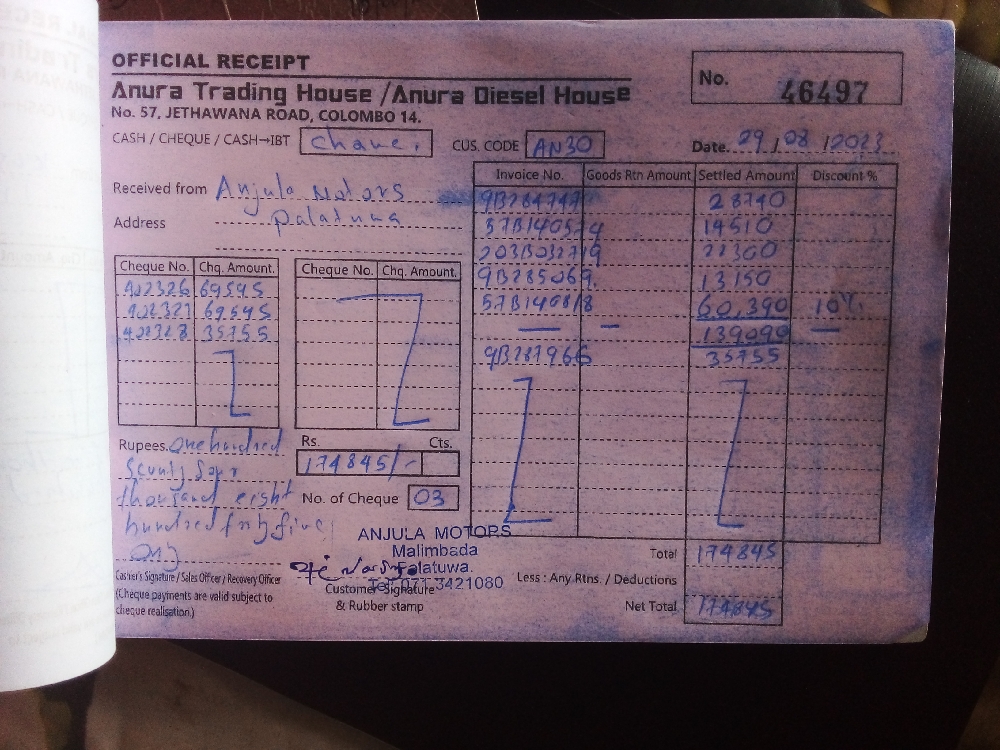 OFFICIAL RECEIPT
Anura Trading House /Anura Diesel House
No. 57, JETHAWANA ROAD, COLOMBO 14.
No. 46497
CASH / CHEQUE / CASH→IBT
CUS. CODE AN30
Date. 29/08/2023
Received from Anjula Motors
Address Palatuwa
Invoice No. Goods Rtn Amount Settled Amount Discount %
28740
57B140574 14510
203B032719
9B285069 13150
57B140818 60,390 10%
139090
9B287966 35755
Cheque No. Chq. Amount. Cheque No. Chq. Amount.
69545
69545
35755
Rupees. One hundred
thousand eight
hundred
Rs. Cts.
174845/-
No. of Cheque 03
ANJULA MOTORS
Malimbada
Palatuwa.
Tel: 071 3421080
Cashier's Signature / Sales Officer / Recovery Officer
(Cheque payments are valid subject to
cheque realisation.)
Customer Signature
& Rubber stamp
Total 174845
Less : Any Rtns. / Deductions
Net Total 174845